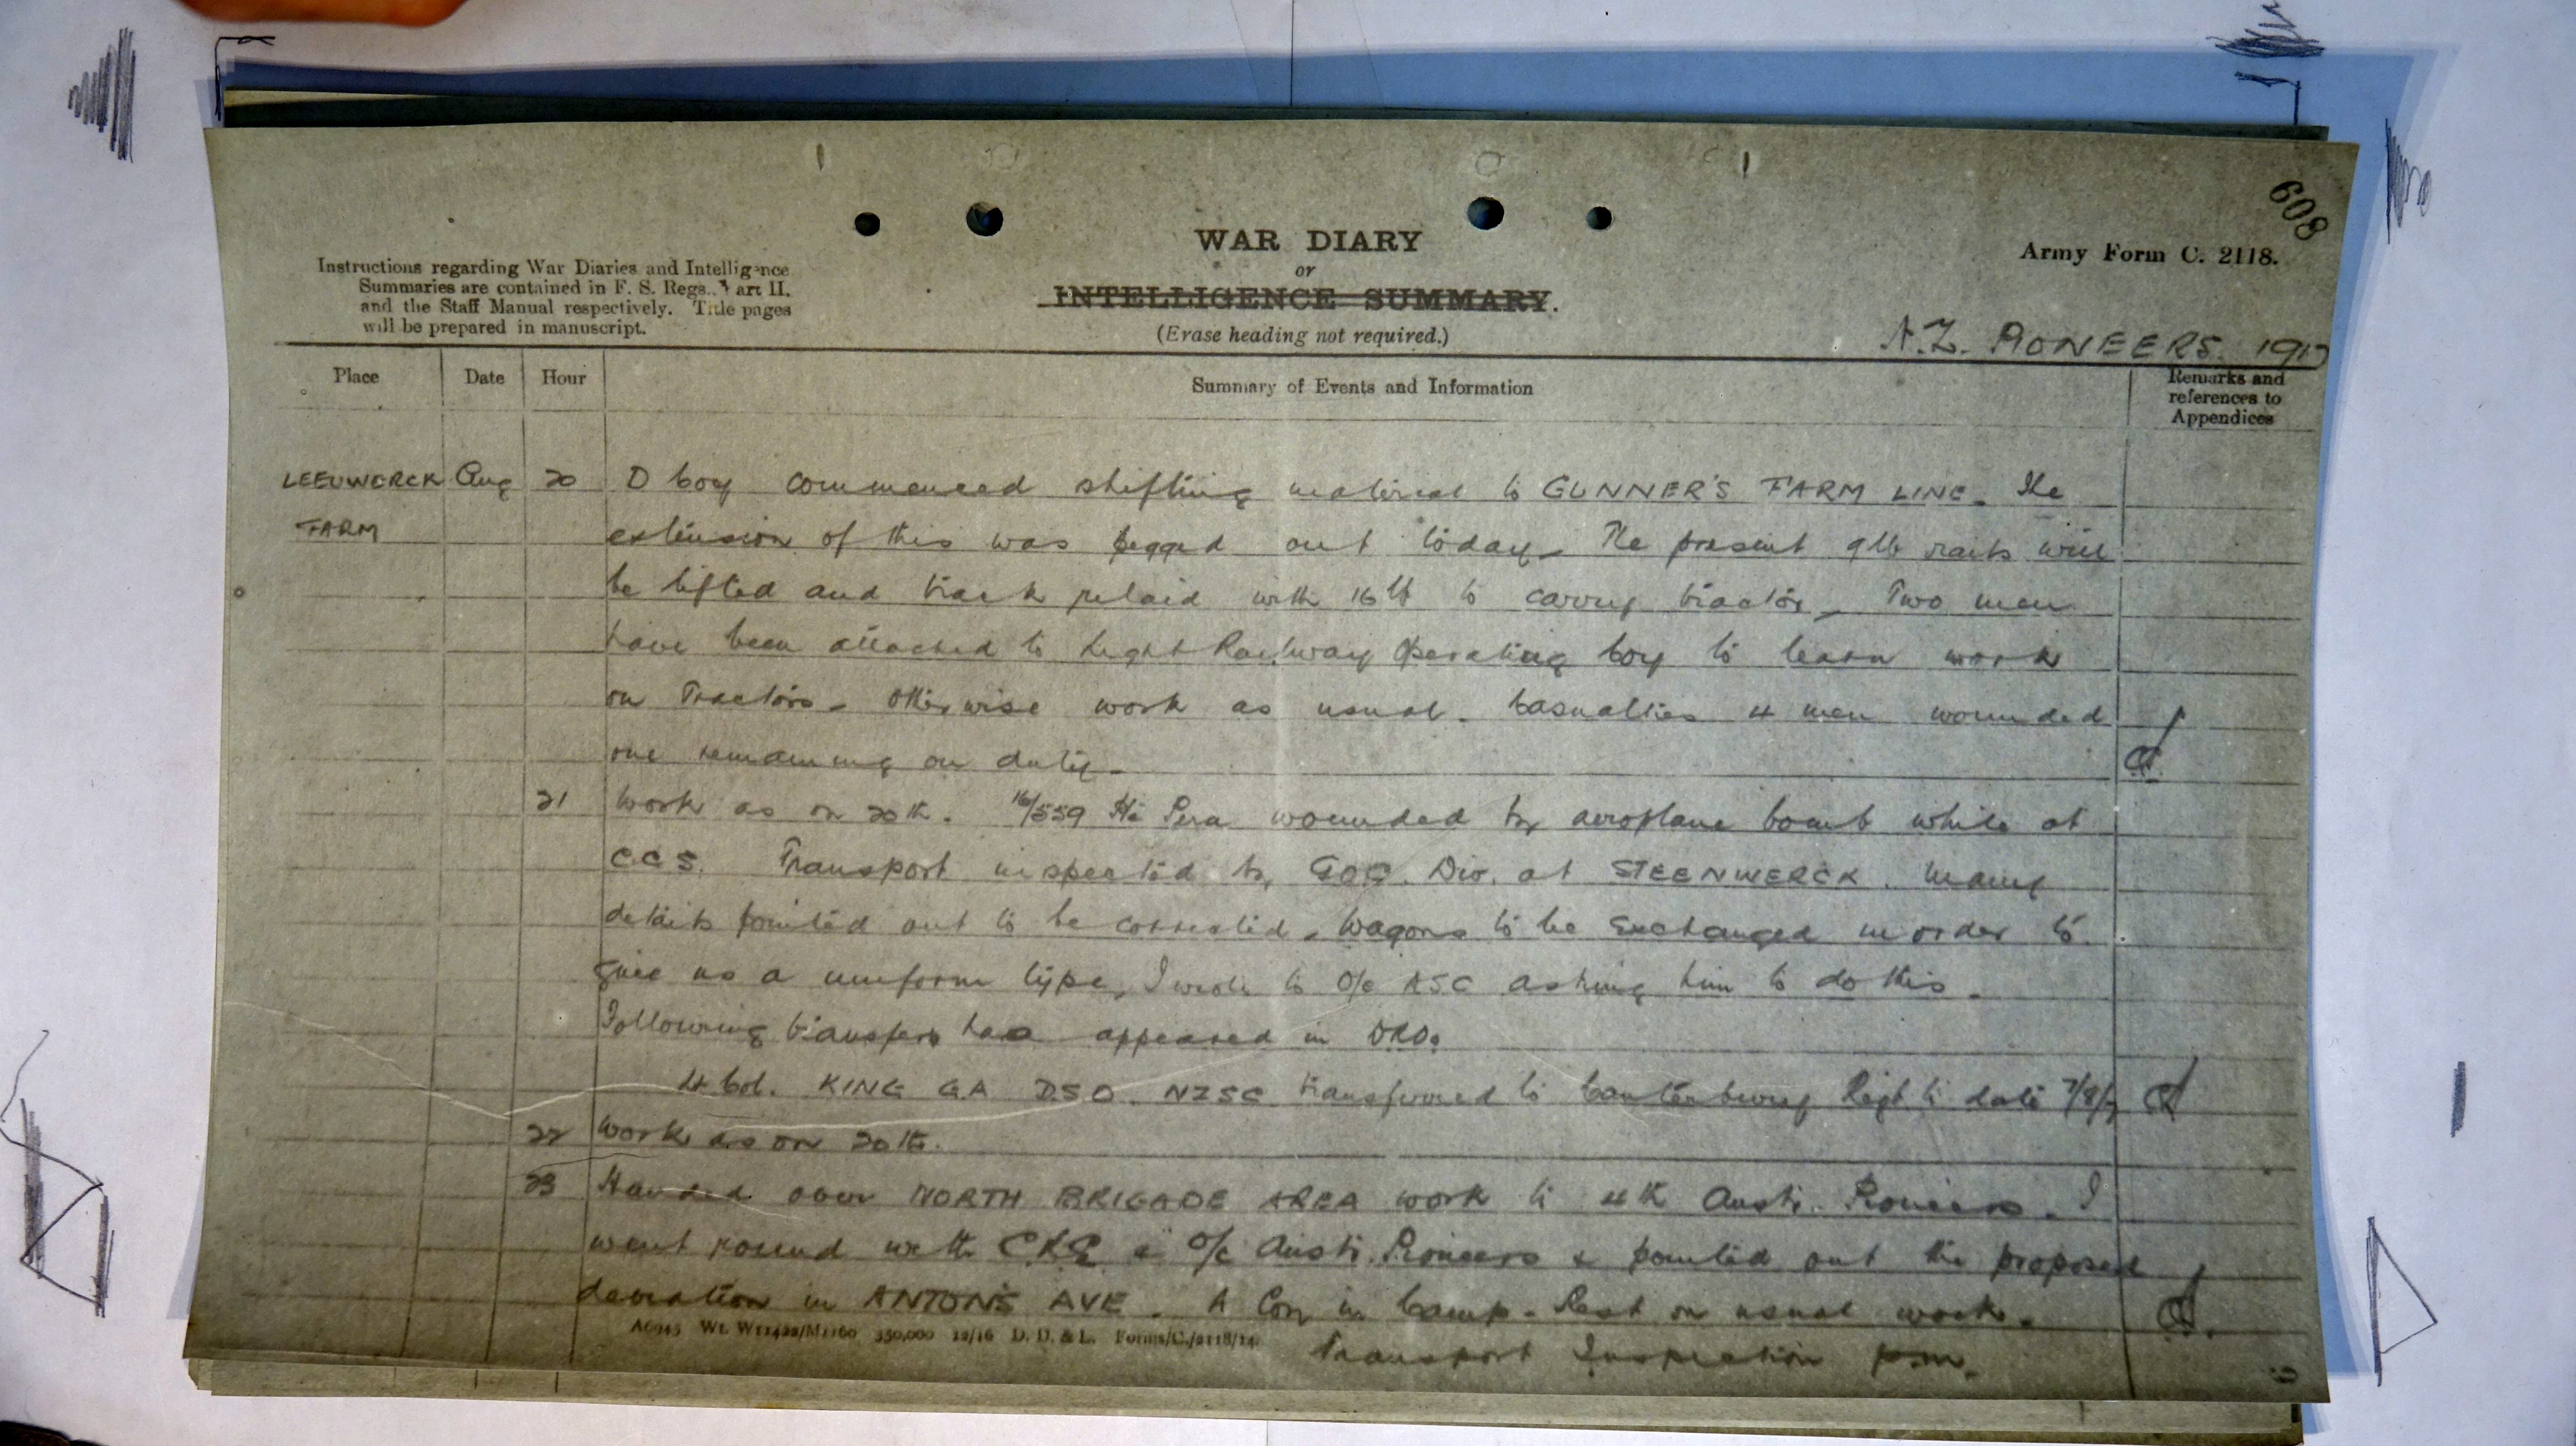 608
WAR DIARY
or
INTELLIGENCE SUMMARY.
(Erase heading not required.)
Army Form C. 2118.
Instructions regarding War Diaries and Intelligence
Summaries are contained in F. S. Regs., Part II.
and the Staff Manual respectively. Title pages
will be prepared in manuscript.
N.Z. PIONEERS. 1917
Place Date Hour Summary of Events and Information Remarks and
references to
Appendices
LEEUWERCK Aug 20 D Coy commenced shifting material to GUNNER'S FARM LINE. The
FARM extension of this was pegged out today. The present 9lb rails will
be lifted and track relaid with 16lb to carry tractor. Two men
have been attached to Light Railway Operating Coy to learn work
on Tractors. Otherwise work as usual. Casualties 4 men wounded
one remaining on duty.
21 Work as on 20th. 16/559 Pera wounded by aeroplane bomb while at
C.C.S. Transport inspected by GOC. Div. at STEENWERCK. Many
details pointed out to be corrected. Wagons to be exchanged in order to
give us a uniform type, I wrote to O/c ASC asking him to do this.
Following transfers has appeared in DRO.
Lt Col. KING G.A DSO. NZSC transferred to Canterbury Regt date 7/8/17
22 Work as on 20th.
23 Handed over NORTH BRIGADE AREA work to 4th Austr. Pioneers. I
went round with C.R.E. & O/c Austr. Pioneers & pointed out the proposed
deviation in ANTON'S AVE. A Coy in Camp. Rest on usual work.
A6945 Wt. W11422/M1160 350,000 12/16 D. D. & L. Forms/C./2118/14.
Transport Inspection p.m.